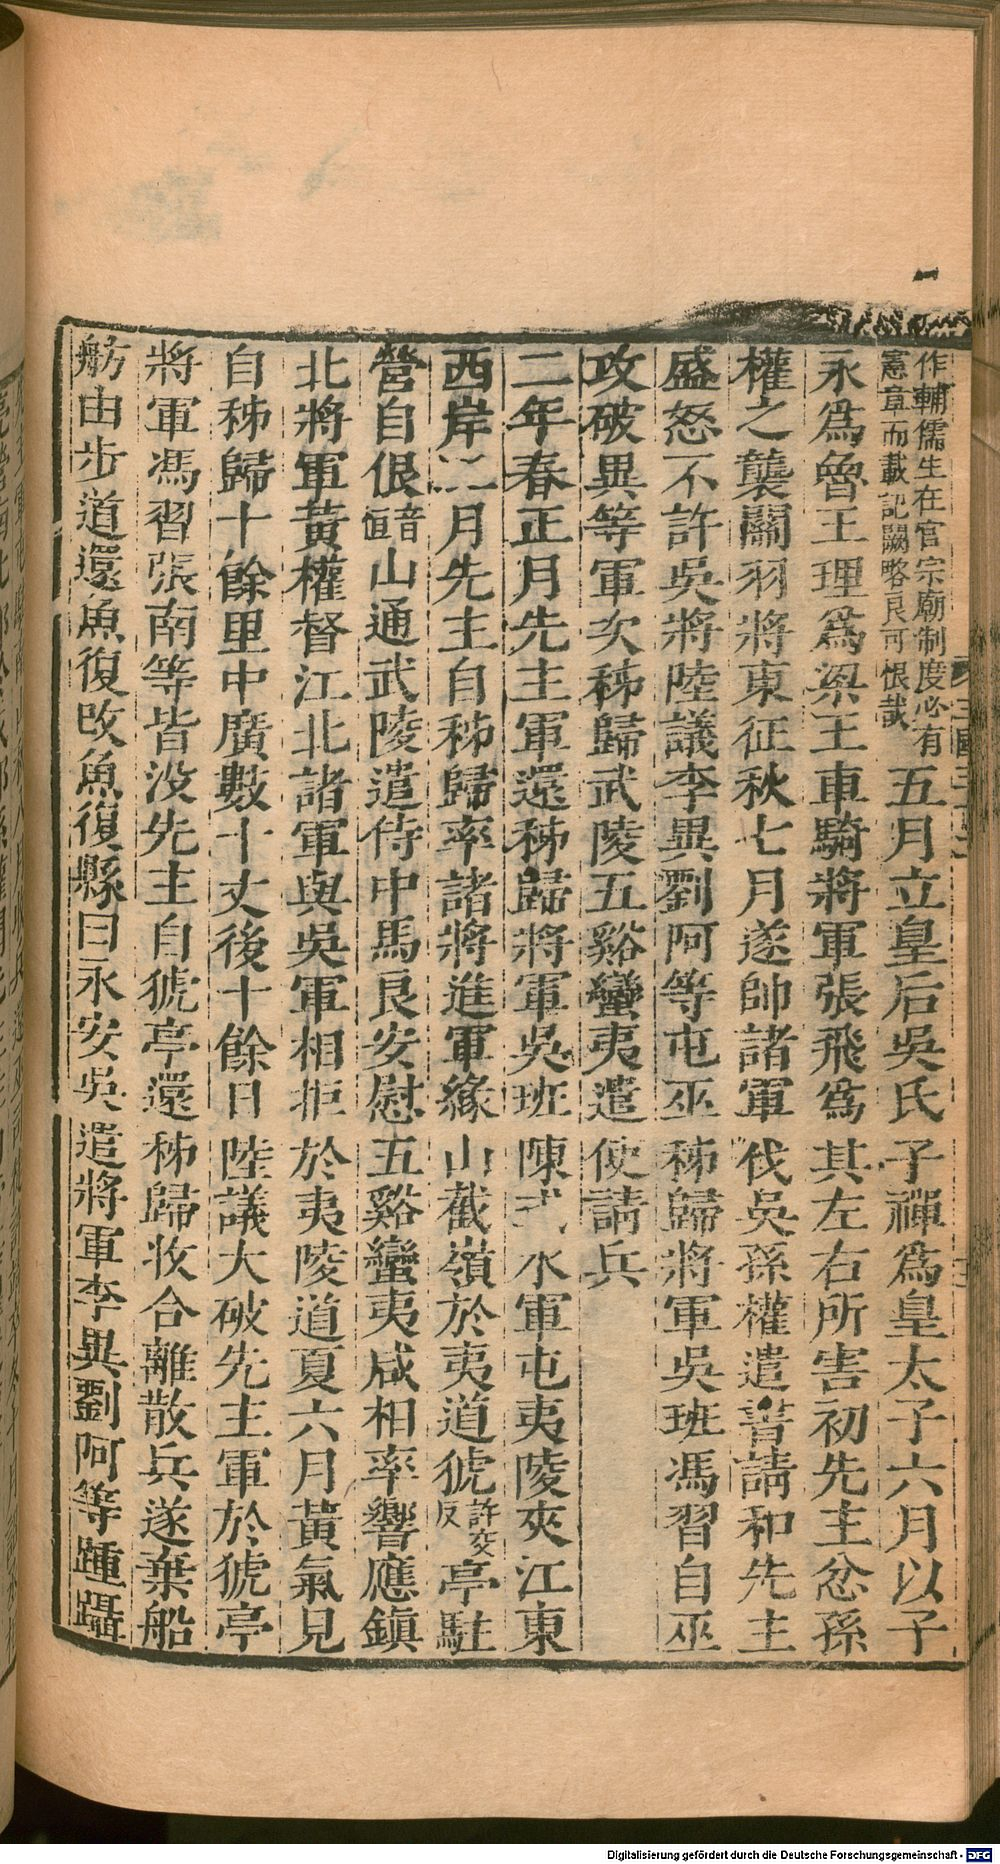 作輔儒生在官宗廟制度必有
憲章而載記闕略良可恨哉
五月立皇后吳氏子禪爲皇太子六月以子
永爲魯王理爲梁王車騎將軍張飛爲其左右所害初先主忿孫
權之襲關羽將東征秋七月遂帥諸軍伐吳孫權遣書請和先主
盛怒不許吳將陸議李異劉阿等屯巫秭歸將軍吳班馮習自巫
攻破異等軍次秭歸武陵五谿蠻夷遣使請兵
二年春正月先主軍還秭歸將軍吳班陳式水軍屯夷陵夾江東
西岸二月先主自秭歸率諸將進軍緣山截嶺於夷道猇許交反亭駐
營自佷音恒山通武陵遣侍中馬良安慰五谿蠻夷咸相率響應鎮
北將軍黃權督江北諸軍與吳軍相拒於夷陵道夏六月黃氣見
自秭歸十餘里中廣數十丈後十餘日陸議大破先主軍於猇亭
將軍馮習張南等皆没先主自猇亭還秭歸收合離散兵遂棄船
舫由步道還魚復改魚復縣曰永安吳遣將軍李異劉阿等踵躡
Digitalisierung gefördert durch die Deutsche Forschungsgemeinschaft - DFG